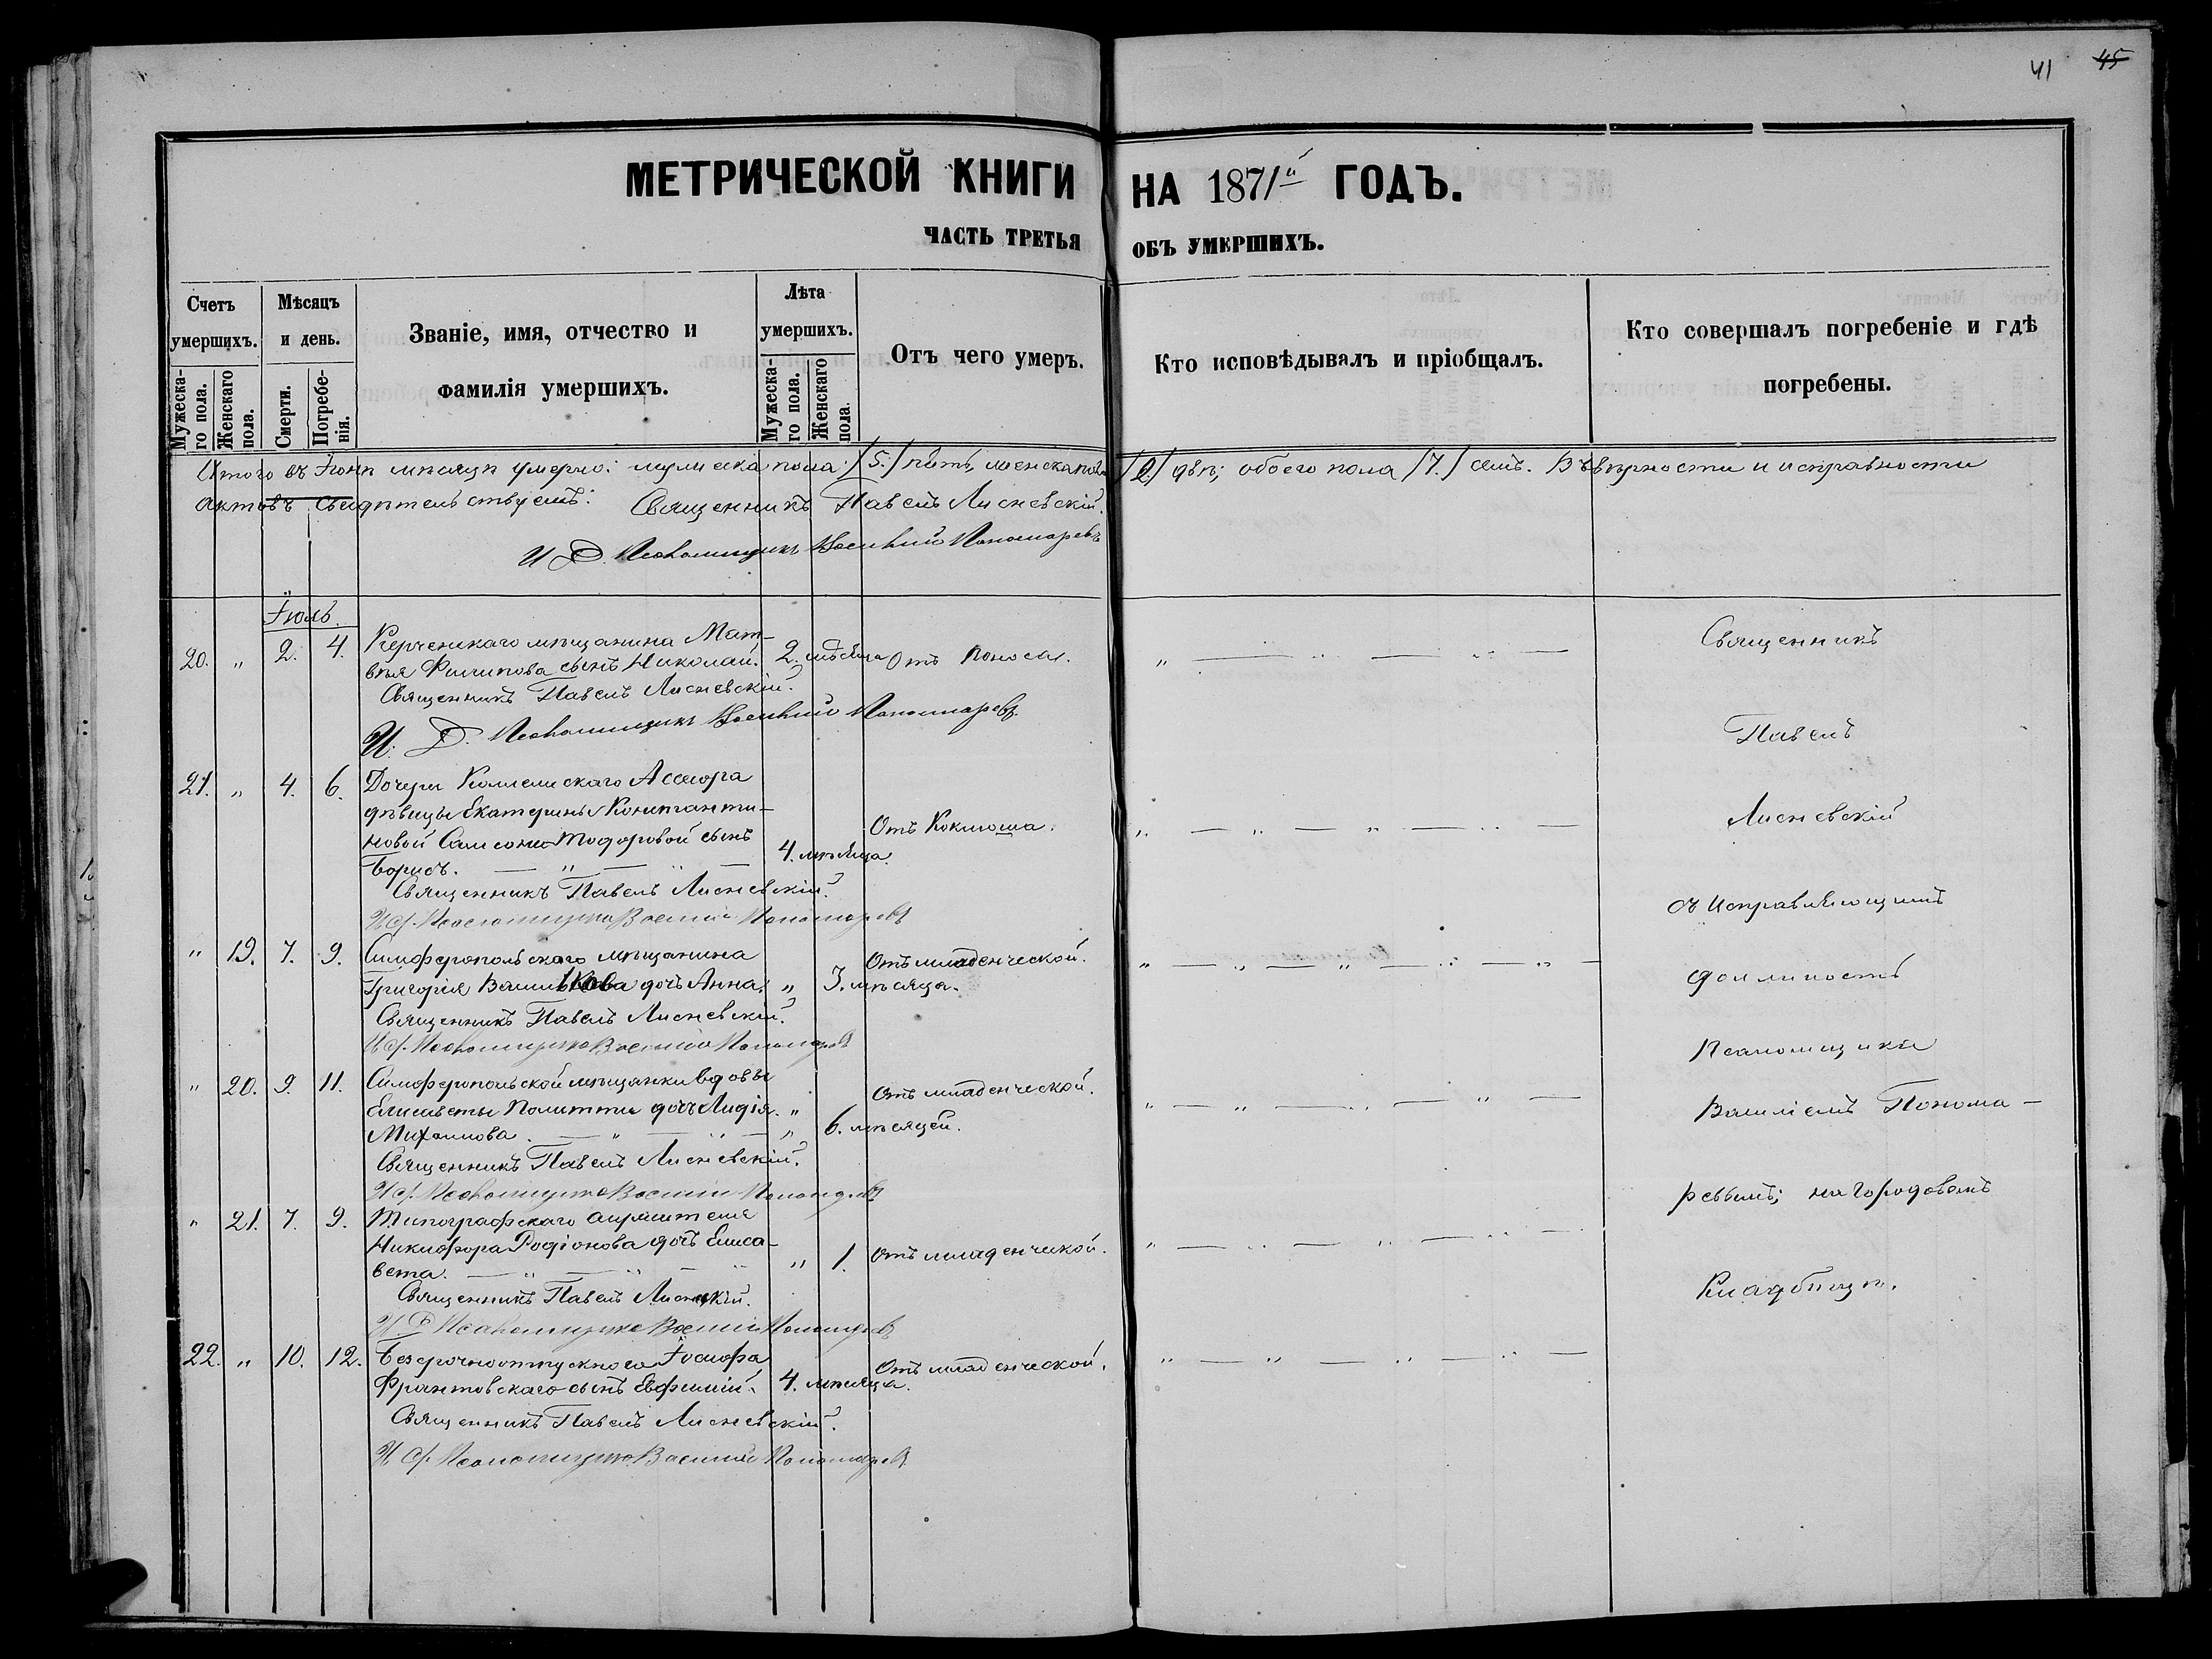 41 45
МЕТРИЧЕСКОЙ КНИГИ НА 1871й ГОДЪ.
ЧАСТЬ ТРЕТЬЯ ОБЪ УМЕРШИХЪ.
Счетъ умершихъ.
Мужескаго пола.
Женскаго пола.
Мѣсяцъ и день.
Смерти.
Погребенія.
Званіе, имя, отчество и фамилія умершихъ.
Лѣта умершихъ.
Мужескаго пола.
Женскаго пола.
Отъ чего умеръ.
Кто исповѣдывалъ и пріобщалъ.
Кто совершалъ погребеніе и гдѣ погребены.
Итого въ Іюнѣ мѣсяцѣ умерло: мужеска пола /5./ пять, женска пола /2/ двѣ; обоего пола /7./ семь. Въ вѣрности и исправности
актовъ свидѣтельствуемъ: Священникъ Павелъ Лисневскій.
И Д. Псаломщика Василій Пономаревъ
Іюль.
20. " 2. 4. Керченскаго мѣщанина Мат-
вѣя Филипова сынъ Николай. 2. мѣсяца Отъ поноса.
Священникъ Павелъ Лисневскій.
И. Д. Псаломщика Василій Пономаревъ.
21. " 4. 6. Дочери Коллежскаго Ассесора
дѣвицы Екатерины Константи-
новой Самсони-Тодоровой сынъ Отъ Коклюша.
Борисъ. 4. мѣсяца.
Священникъ Павелъ Лисневскій.
И д. Псаломщика Василій Пономаревъ
" 19. 7. 9. Симферопольскаго мѣщанина Отъ младенческой.
Григорія дочь Анна. " 3. мѣсяца.
Священникъ Павелъ Лисневскій.
И д. Псаломщика Василій Пономаревъ
" 20. 9. 11. Симферопольской мѣщанки вдовы Отъ младенческой.
Елисаветы дочь Лидія "
Михаилова. " 6. мѣсяцей.
Священникъ Павелъ Лисневскій.
И д. Псаломщика Василій Пономаревъ
" 21. 7. 9. Типографскаго
Никифора Родіонова дочь Елиса-
вета. " 1. Отъ младенческой.
Священникъ Павелъ Лисневскій.
И Д Псаломщика Василій Пономаревъ
22. " 10. 12. Безсрочноотпускного Іосифа Отъ младенческой.
Франтовскаго сынъ Евфимій. 4. мѣсяца.
Священникъ Павелъ Лисневскій.
И д. Псаломщика Василій Пономаревъ
Священникъ
Павелъ
Лисневскій
съ исправляющимъ
должность
Псаломщика
Василіемъ Понома-
ревымъ; на городовомъ
Кладбищѣ.